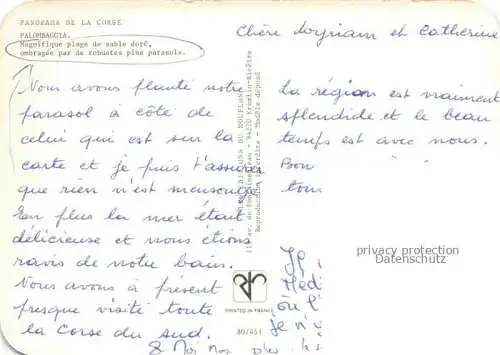 PANORAMA DE LA CORSE
PALOMBAGGIA.
Magnifique plage de sable doré,
ombragée par de robustes pins parasols.
Nous avons planté notre
parasol à côté de
celui qui est sur la
carte et je puis t'assurer
que rien n'est mensonge
En plus la mer était
délicieuse et nous étions
ravis de notre bain.
Nous avons à présent
presque visité toute
la Corse du sud.
& Moi
Reproduction interdite - Modèle déposé
PRINTED IN FRANCE
80/451
Chère Myriam et Catherine
La région est vraiment
splendide et le beau
temps est avec nous.
Bon
privacy protection
Datenschutz
où l'
je n'